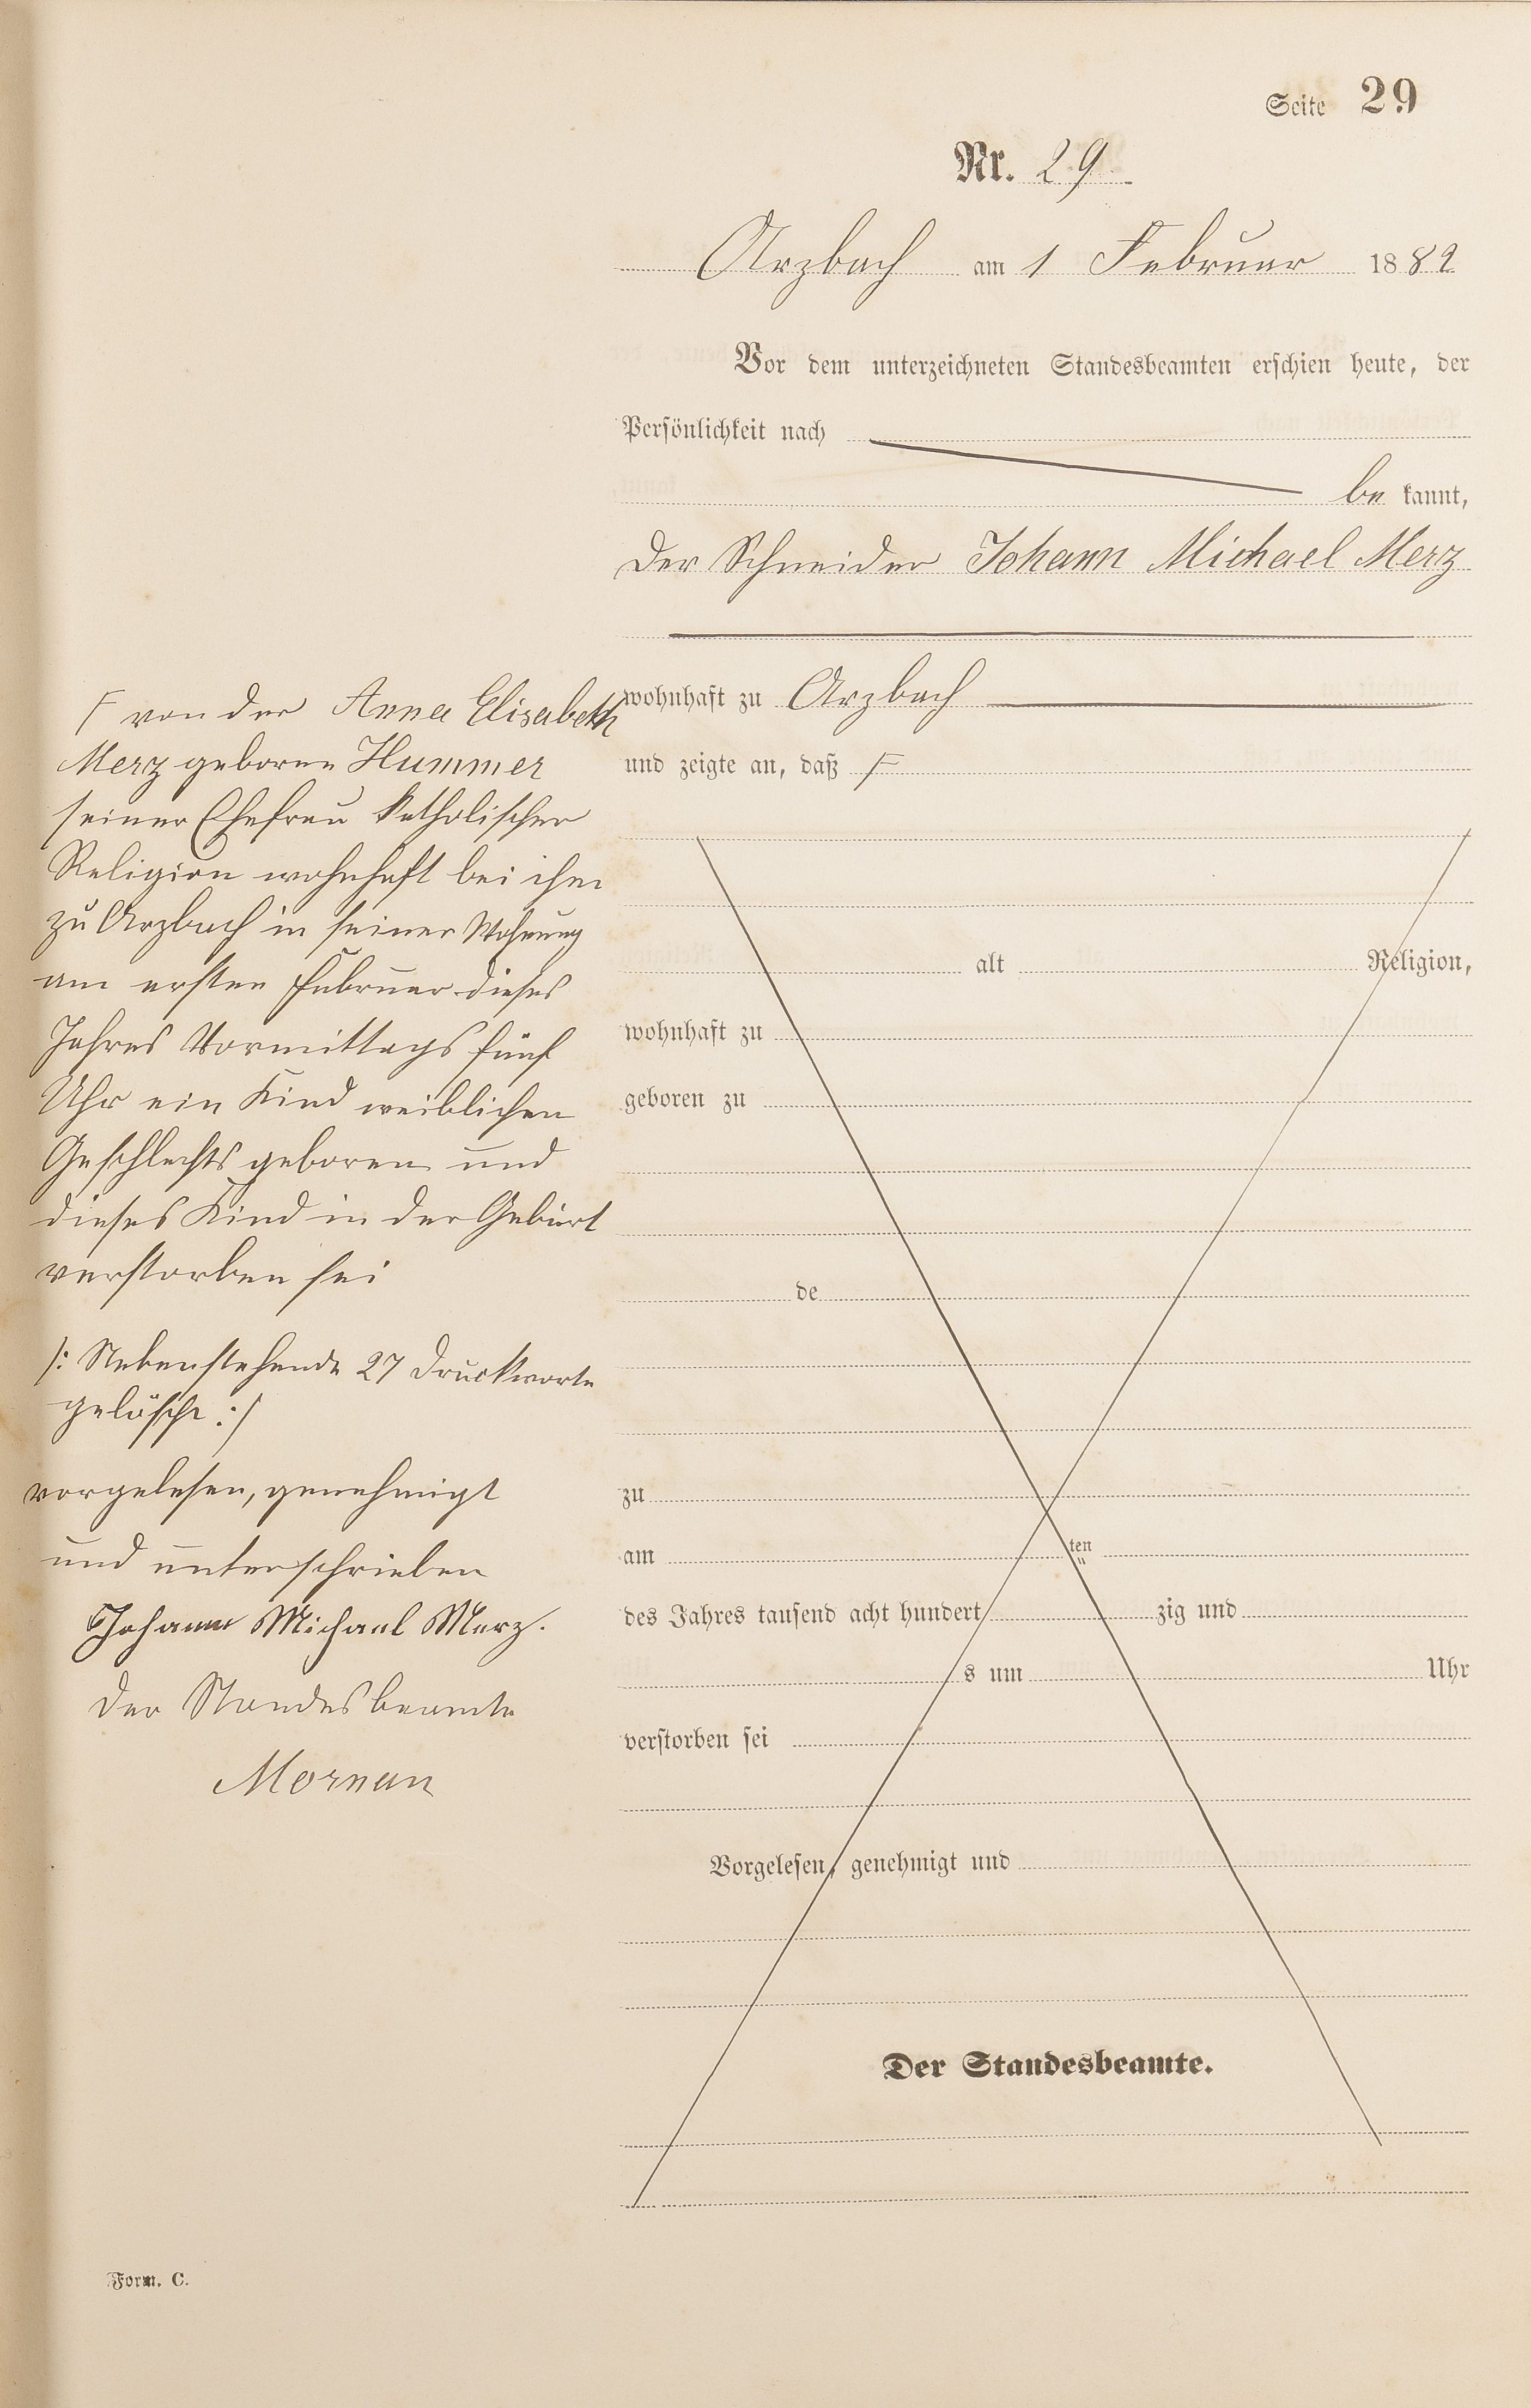 Seite 29
Nr. 29
Arzbach am 1 Februar 1882
Vor dem unterzeichneten Standesbeamten erschien heute, der
Persönlichkeit nach
be kannt,
der Schneider Johann Michael Merz
wohnhaft zu Arzbach
und zeigte an, daß F
alt Religion,
wohnhaft zu
geboren zu
de
zu
am ten
des Jahres tausend acht hundert zig und
s um Uhr
verstorben sei
Vorgelesen, genehmigt und
Der Standesbeamte.
F von der Anna Elisabeth
Merz geborene Hummer
seiner Ehefrau katholischer
Religion wohnhaft bei ihm
zu Arzbach in seiner Wohnung
am ersten Februar dieses
Jahres Vormittags fünf
Uhr ein Kind weiblichen
Geschlechts geboren und
dieses Kind in der Geburt
verstorben sei
/: Nebenstehende 27 Druckworte
gelöscht :/
vorgelesen, genehmigt
und unterschrieben
Johann Michael Merz.
der Standesbeamte
Form. C.